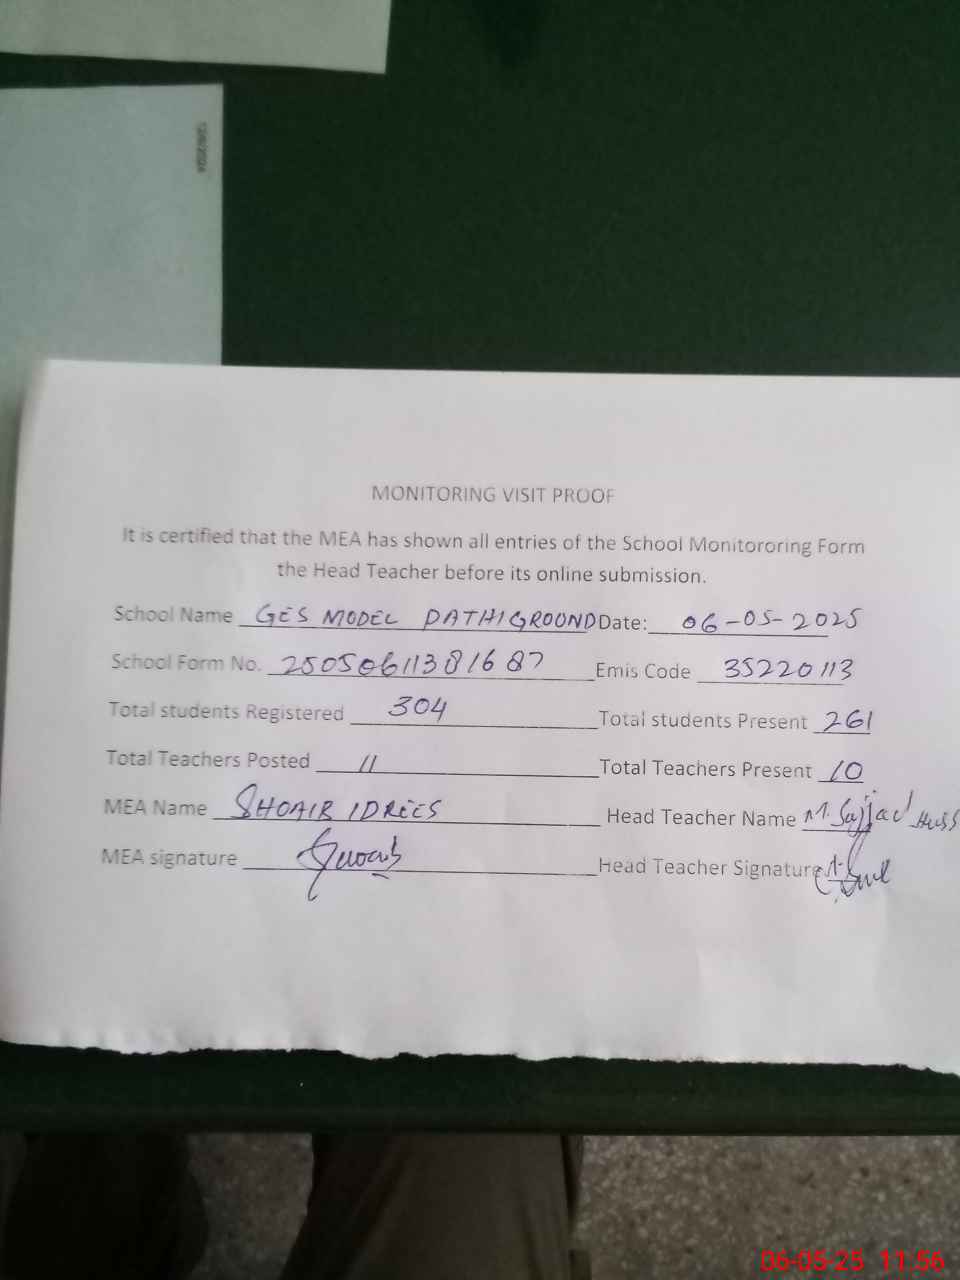 MONITORING VISIT PROOF
It is certified that the MEA has shown all entries of the School Monitororing Form
the Head Teacher before its online submission.
School Name GES MODEL PATHIGROOND Date: 06-05-2025
School Form No. 25050611381687 Emis Code 35220113
Total students Registered 304 Total students Present 261
Total Teachers Posted 11 Total Teachers Present 10
MEA Name SHOAIB IDREES Head Teacher Name M. Sajjad Huss
MEA signature Head Teacher Signature
06-05-25 11:56